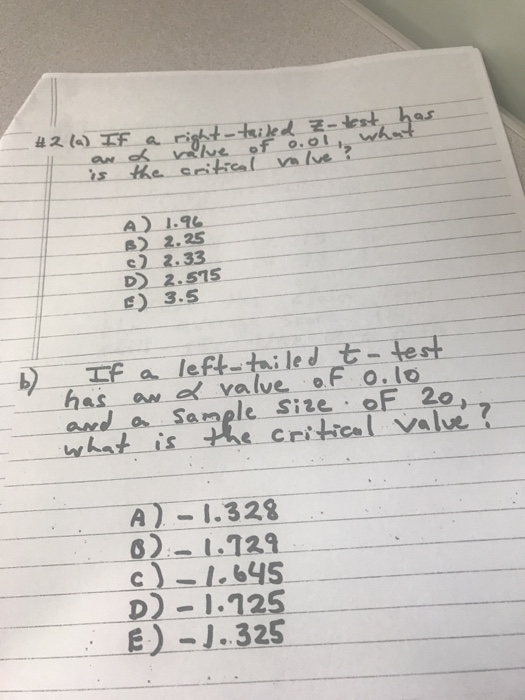 #2 (a) If a right-tailed z-test has
an α value of 0.01, what
is the critical value?
A) 1.96
B) 2.25
C) 2.33
D) 2.575
E) 3.5
b) If a left-tailed t-test
has an α value of 0.10
and a sample size of 20,
what is the critical value?
A) -1.328
B) -1.729
C) -1.645
D) -1.725
E) -1.325